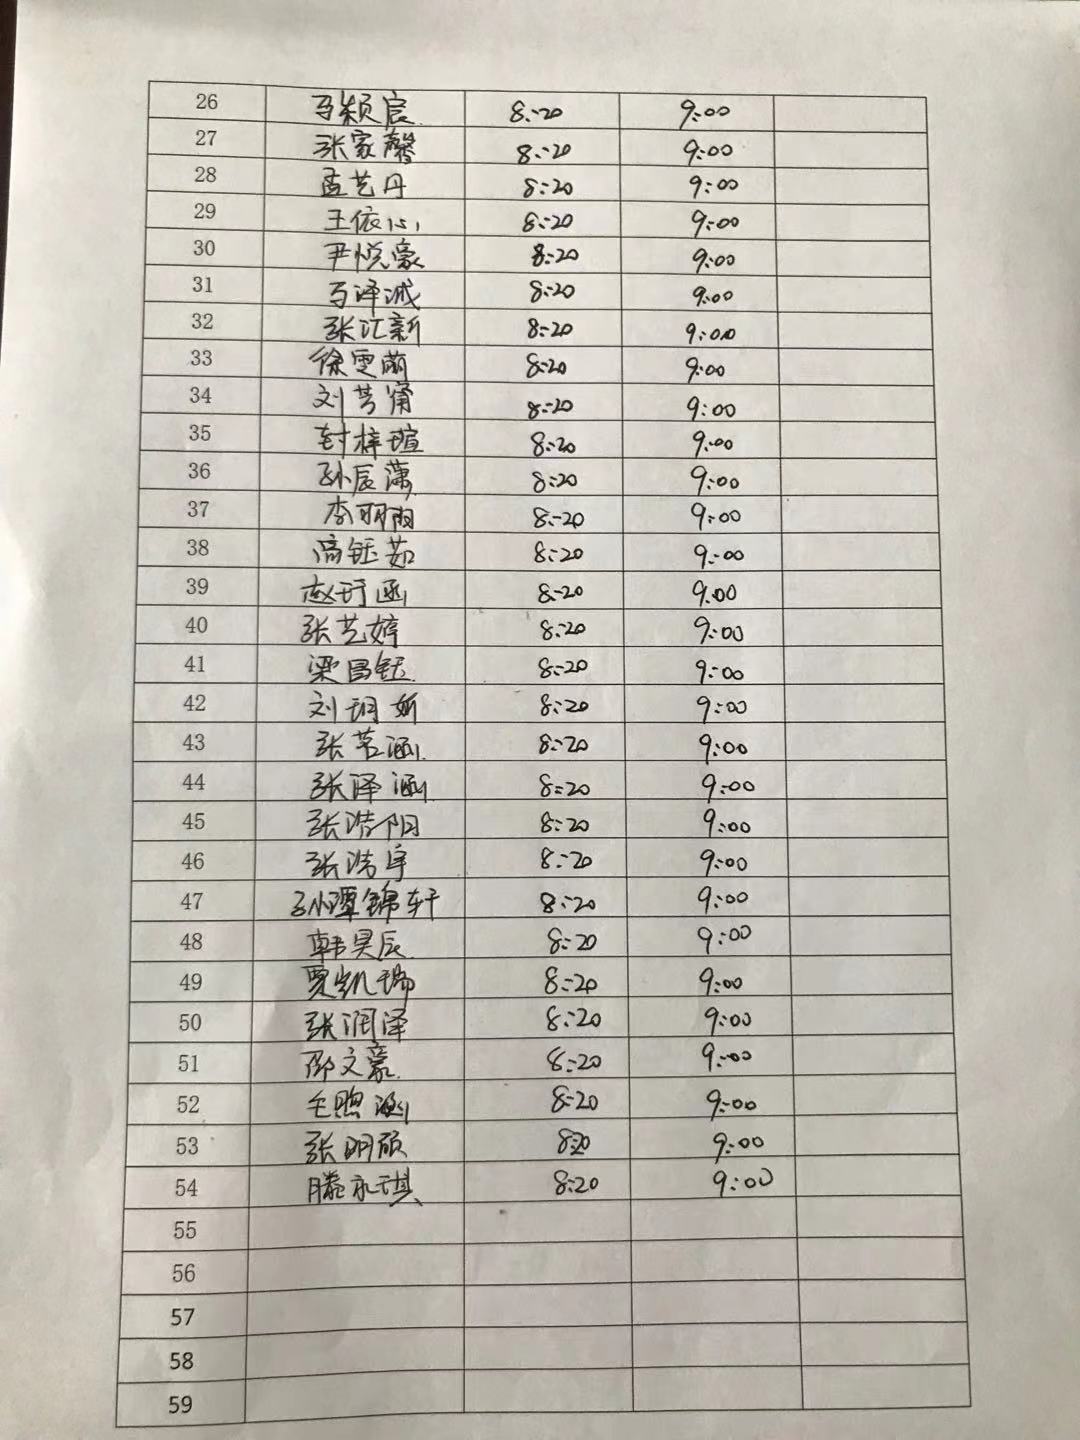 26 马颖宸 8:20 9:00
27 张家馨 8:20 9:00
28 孟艺丹 8:20 9:00
29 王依心 8:20 9:00
30 尹悦豪 8:20 9:00
31 马泽诚 8:20 9:00
32 张汇新 8:20 9:00
33 徐雯萌 8:20 9:00
34 刘芳甯 8:20 9:00
35 封梓瑄 8:20 9:00
36 孙辰潇 8:20 9:00
37 李明雨 8:20 9:00
38 高钰茹 8:20 9:00
39 赵玗函 8:20 9:00
40 张艺婷 8:20 9:00
41 梁昌钰 8:20 9:00
42 刘玥妡 8:20 9:00
43 张茗涵 8:20 9:00
44 张泽涵 8:20 9:00
45 张浩阳 8:20 9:00
46 张浩宇 8:20 9:00
47 孙谭锦轩 8:20 9:00
48 韩昊辰 8:20 9:00
49 贾凯瑞 8:20 9:00
50 张润泽 8:20 9:00
51 邵文豪 8:20 9:00
52 王煦涵 8:20 9:00
53 张明硕 8:20 9:00
54 滕永琪 8:20 9:00
55
56
57
58
59